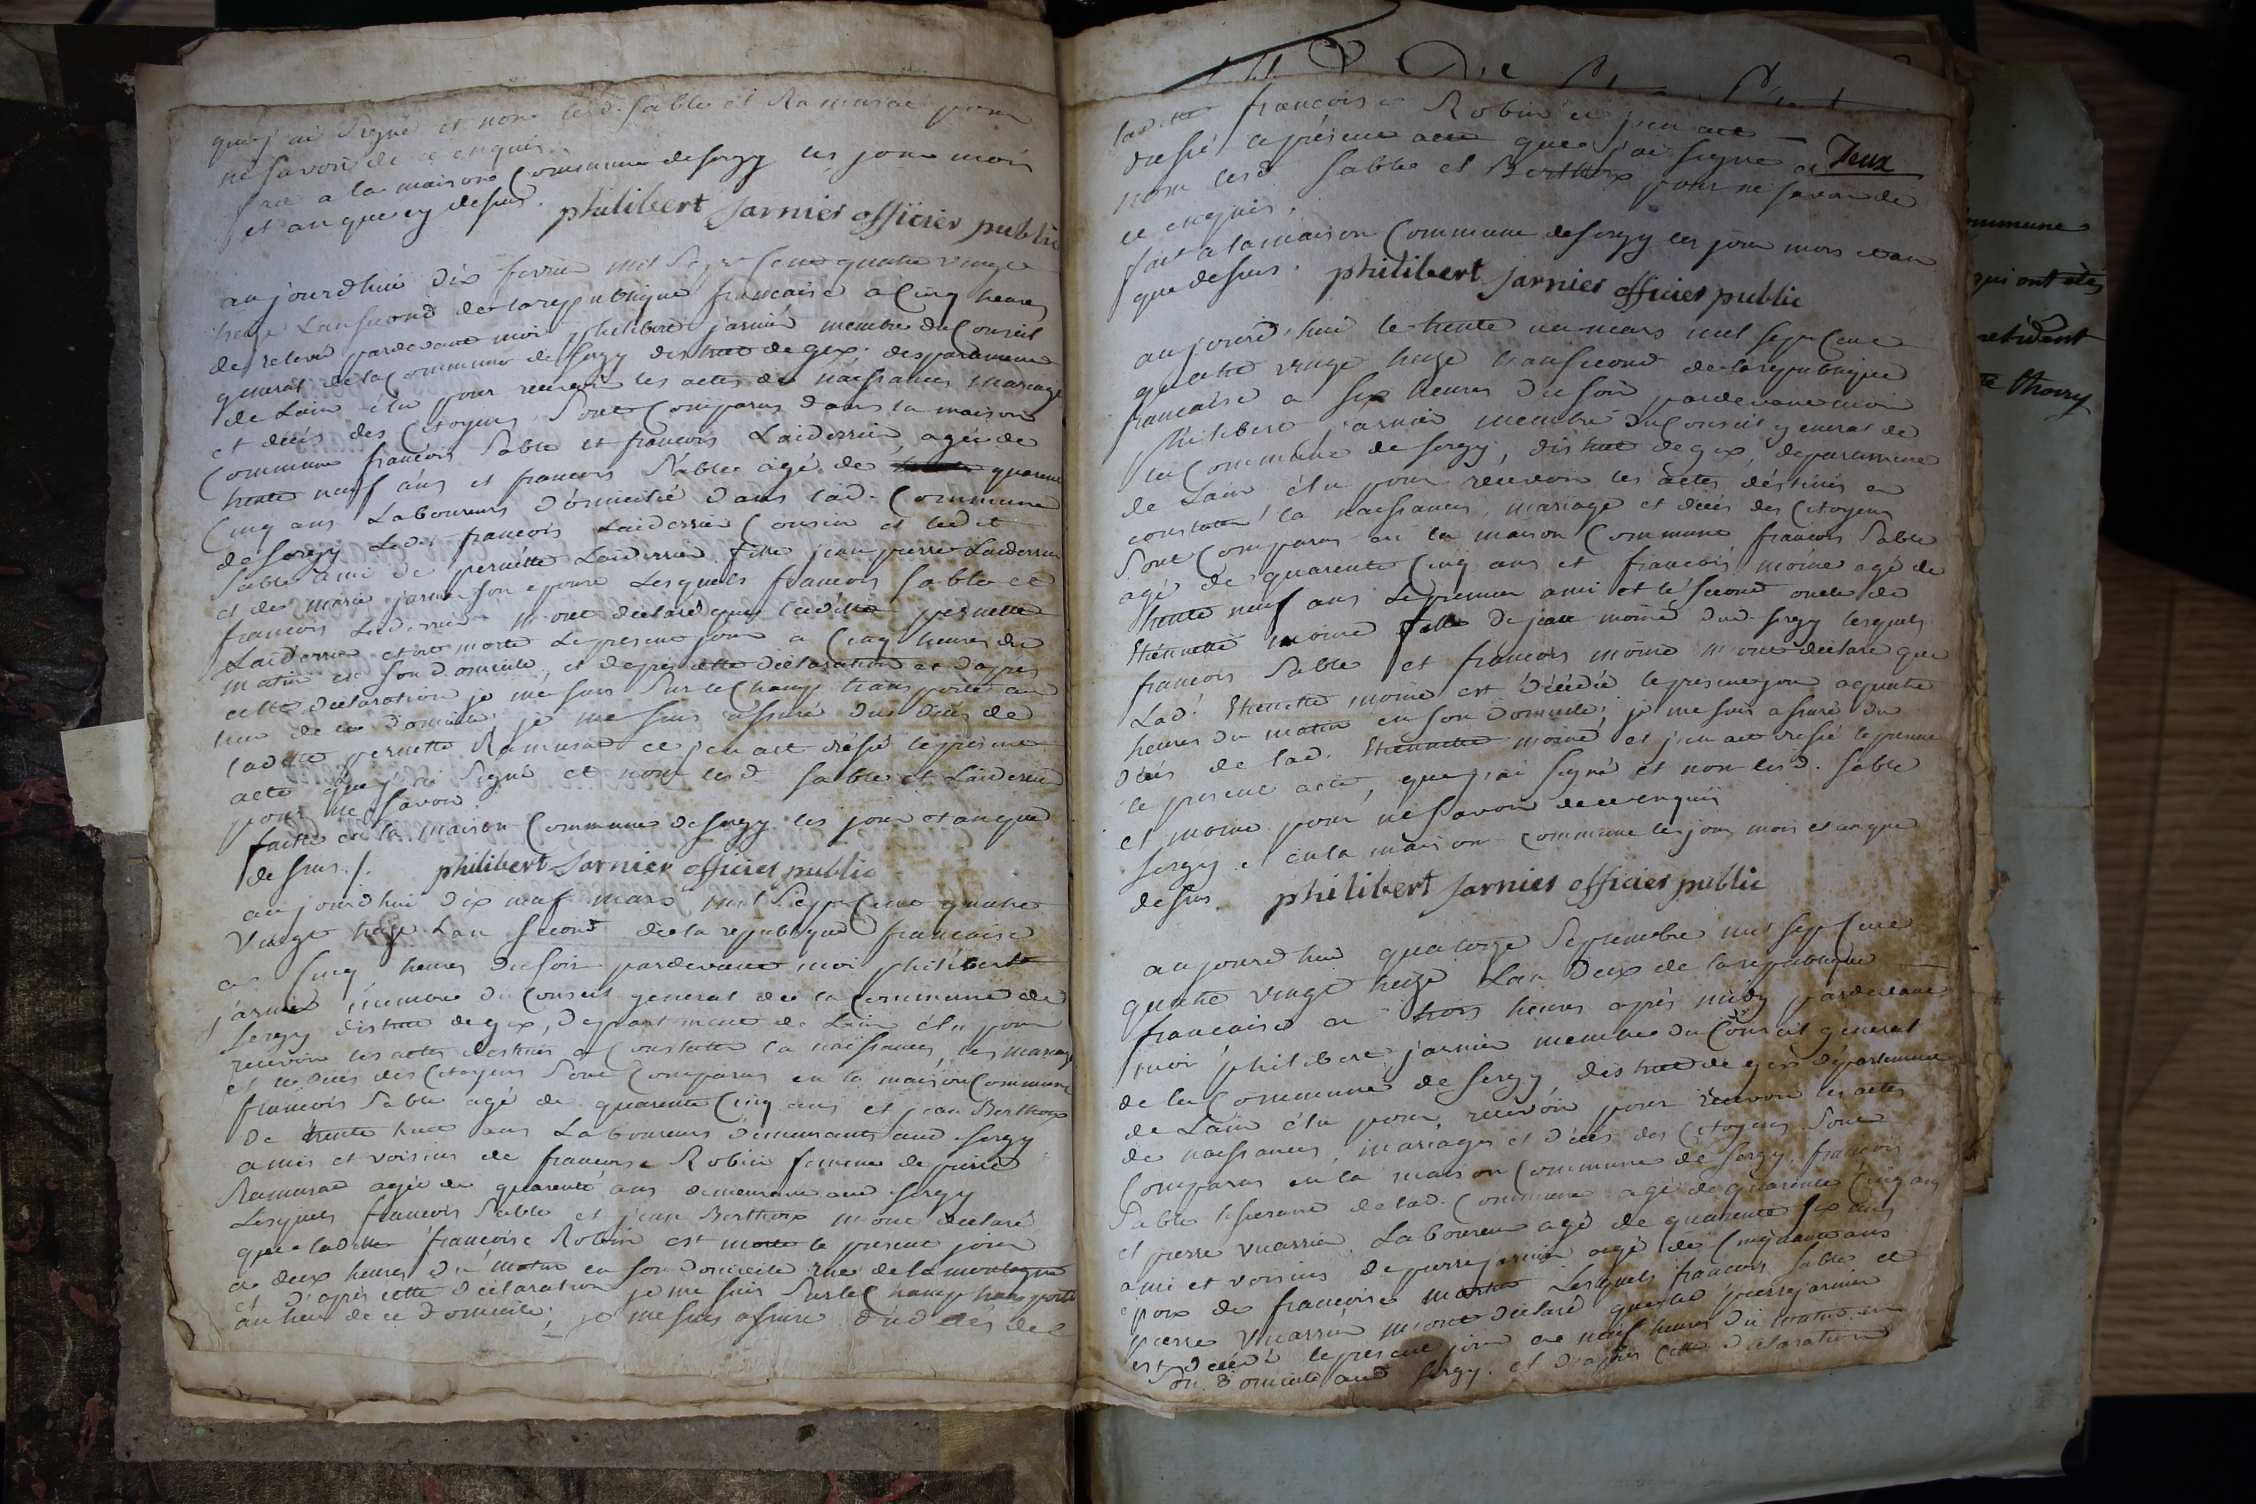 que j'ai signé et non lesd. sable et Ramusat pour
ne savoir de ce enquis.
fait a la maison Commune de sergy les jour mois
et an que cy dessus. philibert jarnier officier public
aujourdhui dix fevrier mil sept cent quatre vingt
treize Lan second de la republique francaise a Cinq heures
de relevé pardevant moi philibert jarnier membre du Conseil
general de la Commune de sergy district de gex, departement
de Lain élu pour recevoir les actes de naissances mariage
et décés des Citoyens sont Comparus dans la maison
Commune francois sable et francois Laiderrier, agée de
trente neuf ans et francois sable agé de quarente
Cinq ans Laboureurs domicilié dans lad. Commune
de sergy Led. francois Laiderrier Cousin et ledit
sable ami de pernette Laiderrier fille jean pierre Laiderrier
et de marie jarnier son epouse Lesquels francois sable et
francois Laiderrier m'ont déclaré que laditte pernette
Laiderrier etre morte le present jour a Cinq heures du
matin en son domicile, et depres cette déclaration et dapres
cette declaration je me suis sur le Champ transporté au
lieu de ce domicile, je me suis assuré du décés de
laditte pernette Ramusat et j'en ait drésé le présent
acte que j'ai signé et non lesd. sable et Laiderrier
pour ne savoir.
faitte en la maison Commune de sergy les jour et an que
dessus ./. philibert jarnier officier public
aujourdhui dix neuf mars mil sept Cent quatre
Vingt treize Lan second de la republique francaise
a Cinq heures du soir pardevant moi philibert
jarnier membre du Conseil general de la Commune de
sergy district de gex, departement de Lain élu pour
recevoir les actes destinés a Constatter la naissances, les mariage
et le décés des Citoyens sont Comparus en la maison Commune
francois sable agé de quarente Cinq ans et jean Berthoux
de trente huit ans Laboureurs demeurants aud. sergy
amis et voisins de francoise Robin femme de pierre
Ramusat agée de quarente ans demeurant aud. sergy
Lesquels francois sable et jean Berthoux m'ont declaré
que laditte francoise Robin est morte le present jour
a deux heures du matin en son domicile rue de la montagne
et d'après cette déclaration je me suis sur le Champ transporté
au lieu de ce domicile; je me suis assuré du décés de
laditte francoise Robin et j'en ait
dressé le présent acte que j'ai signé et Deux
non lesd. sable et Berthoux pour ne savoir de
ce enquis.
fait a la maison Commune de sergy les jour mois et an
que dessus. philibert jarnier officier public
aujourd'hui le trente un mars mil sept Cent
quatre vingt treize Lan second de la republique
francaise a six heures du soir pardevant moi
philibert jarnier membre du Conseil general de
la Commune de sergy, district de gex, departement
de Lain élu pour recevoir les actes déstinés a
constatter la naissances, mariage et décés des Citoyens
sont Comparus en la maison Commune francois sable
agé de quarente Cinq ans et francois moine agé de
trente neuf ans le premier ami et le second oncle de
Etiennette moine fille de jean moine dud. sergy lesquels
francois sable et francois moine m'ont déclaré que
Lad. Etiennette moine est décédée le present jour a quatre
heures du matin en son domicile; je me suis assuré du
décés de lad. Etiennette moine et j'en ait dressé le present
le present acte, que j'ai signé et non lesd. sable
et moine pour ne savoir de ce enquis
sergy et en la maison Commune les jour mois et an que
dessus. philibert jarnier officier public
aujourdhui quatorze septembre mil sept Cent
quatre vingt treize Lan Deux de la republique
francaise a trois heures après midy pardevant
moi philibert jarnier membre du Conseil general
de la Commune de sergy, district de gex departement
de Lain élu pour recevoir pour recevoir les actes
de naissances, mariages et décés des Citoyens sont
Comparus en la maison Commune de sergy francois
sable tisserant de lad. Commune agé de quarente Cinq ans
et pierre vuarrier Laboureur agé de quarente six ans
ami et voisins de pierre jarnier agé de Cinquante ans
epoux de francoise martin Lesquels francois sable et
pierre vuarrier m'ont déclaré que led. pierre jarnier
est décédé le present jour a neuf heures du matin en
son domicile aud. sergy. et d'apres cette déclaration
ommune
qui ont étés
résident
te thoiry